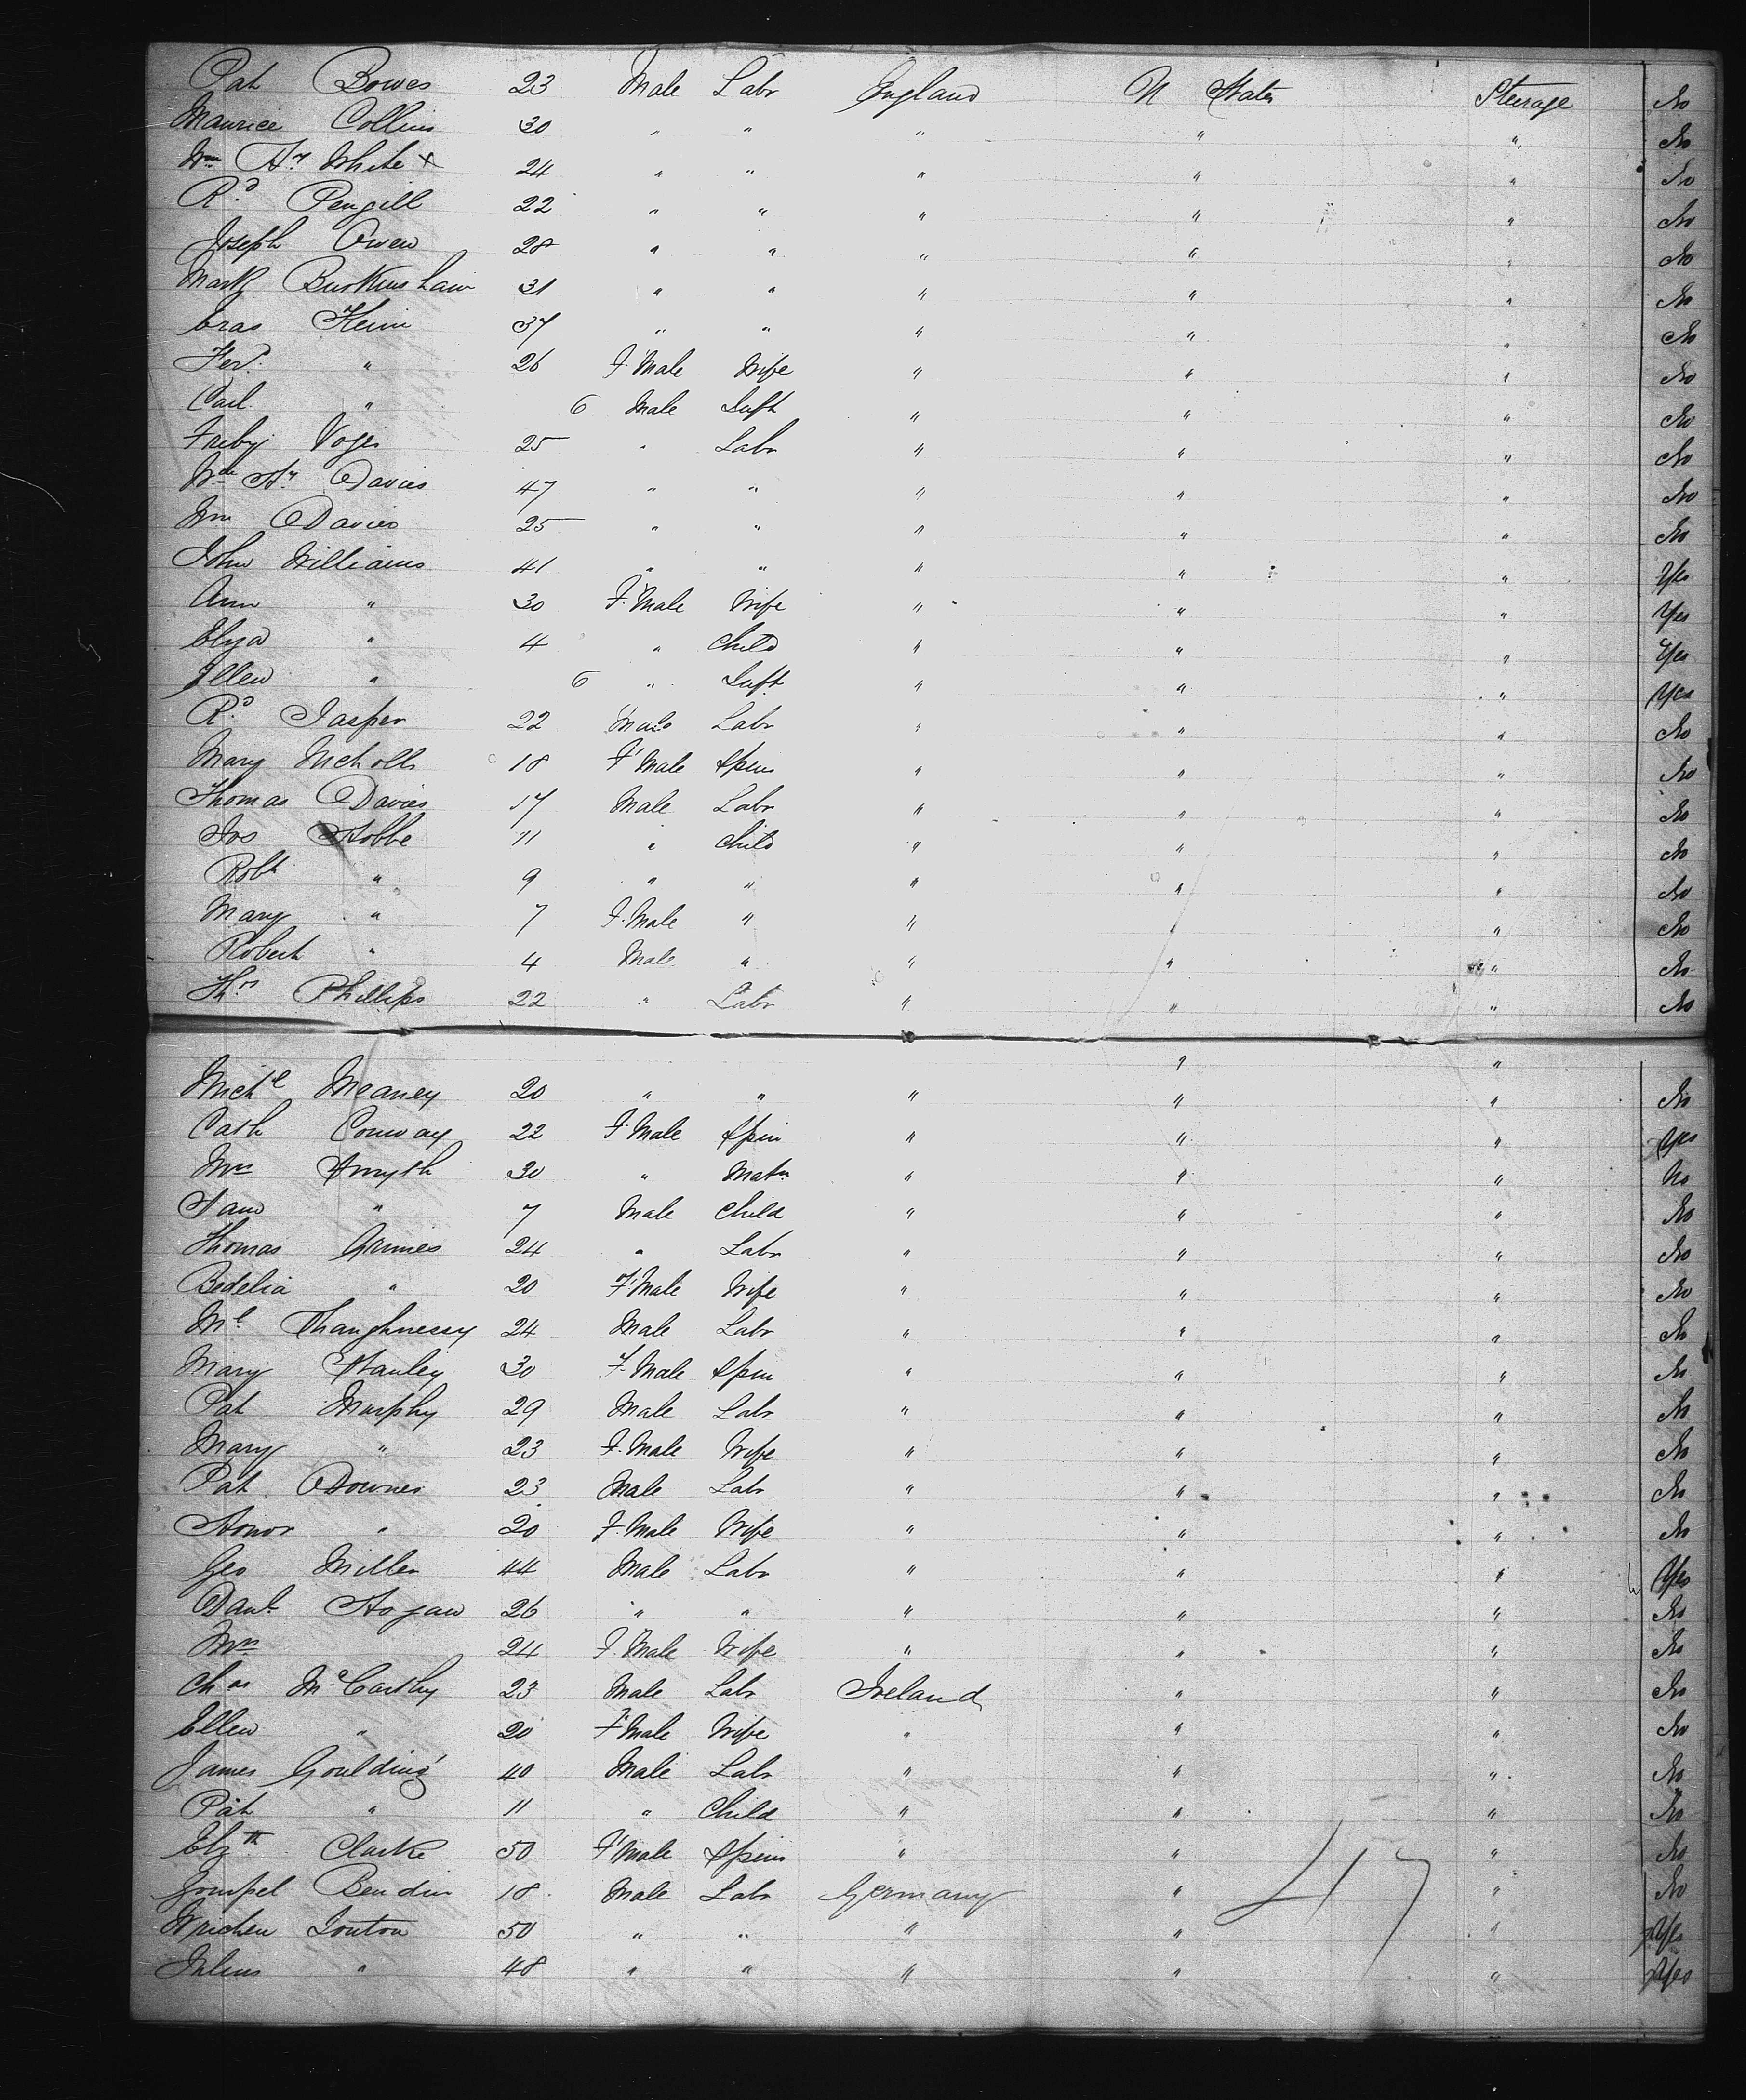 Pat Bowes 23 Male Labr England U States Steerage No
Maurice Collins 30 " " " " " No
Wm Hy White x 24 " " " " " No
Rd Pengill 22 " " " " " No
Joseph Owen 28 " " " " " No
Mark Burkinshaw 31 " " " " " No
Eras Keim 37 " " " " " No
Ferd. " 26 F. Male Wife " " " No
Carl " 6 Male Inft " " " No
Voges 25 " Labr " " " No
Wm Hy Davies 47 " " " " " No
Wm Davies 25 " " " " " No
John Williams 41 " " " " " Yes
Ann " 30 F. Male Wife " " " Yes
Elija " 4 " Child " " " Yes
Ellen " 6 " Inft " " " Yes
Rd Jasper 22 Male Labr " " " No
Mary Nicholls 18 F Male Spin " " " No
Thomas Davies 17 Male Labr " " " No
Jos Hobbe 11 " Child " " " No
Robt " 9 " " " " " No
Mary " 7 F. Male " " " " No
Robert " 4 Male " " " " No
Ths Phillips 22 " Labr " " " No
" "
Michl Meaney 20 " " " " " No
Cath Conway 22 F. Male Spin " " " Yes
Mrs Smyth 30 " Matn " " " No
Sam " 7 Male Child " " " No
Thomas Grimes 24 " Labr " " " No
Bedelia " 20 F. Male Wife " " " No
Ml Shaughnessy 24 Male Labr " " " No
Mary Stanley 30 F. Male Spin " " " No
Pat Murphy 29 Male Labr " " " No
Mary " 23 F. Male Wife " " " No
Pat Downes 23 Male Labr " " " No
Honor " 20 F. Male Wife " " " No
Geo Miller 44 Male Labr " " " Yes
Danl Hogan 26 " " " " " No
Mrs 24 F. Male Wife " " " No
Chas McCarthy 23 Male Labr Ireland " " No
Ellen " 20 F Male Wife " " " No
James Goulding 40 Male Labr " " " No
Pat " 11 " Child " " " No
Elzth Clarke 50 F Male Spin " " " No
Gompel Bendin 18 Male Labr Germany " " No
Louton 50 " " " " " Yes
Julius " 48 " " " " " Yes
47